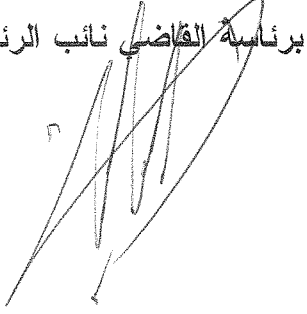 برئاسة القاضي نائب